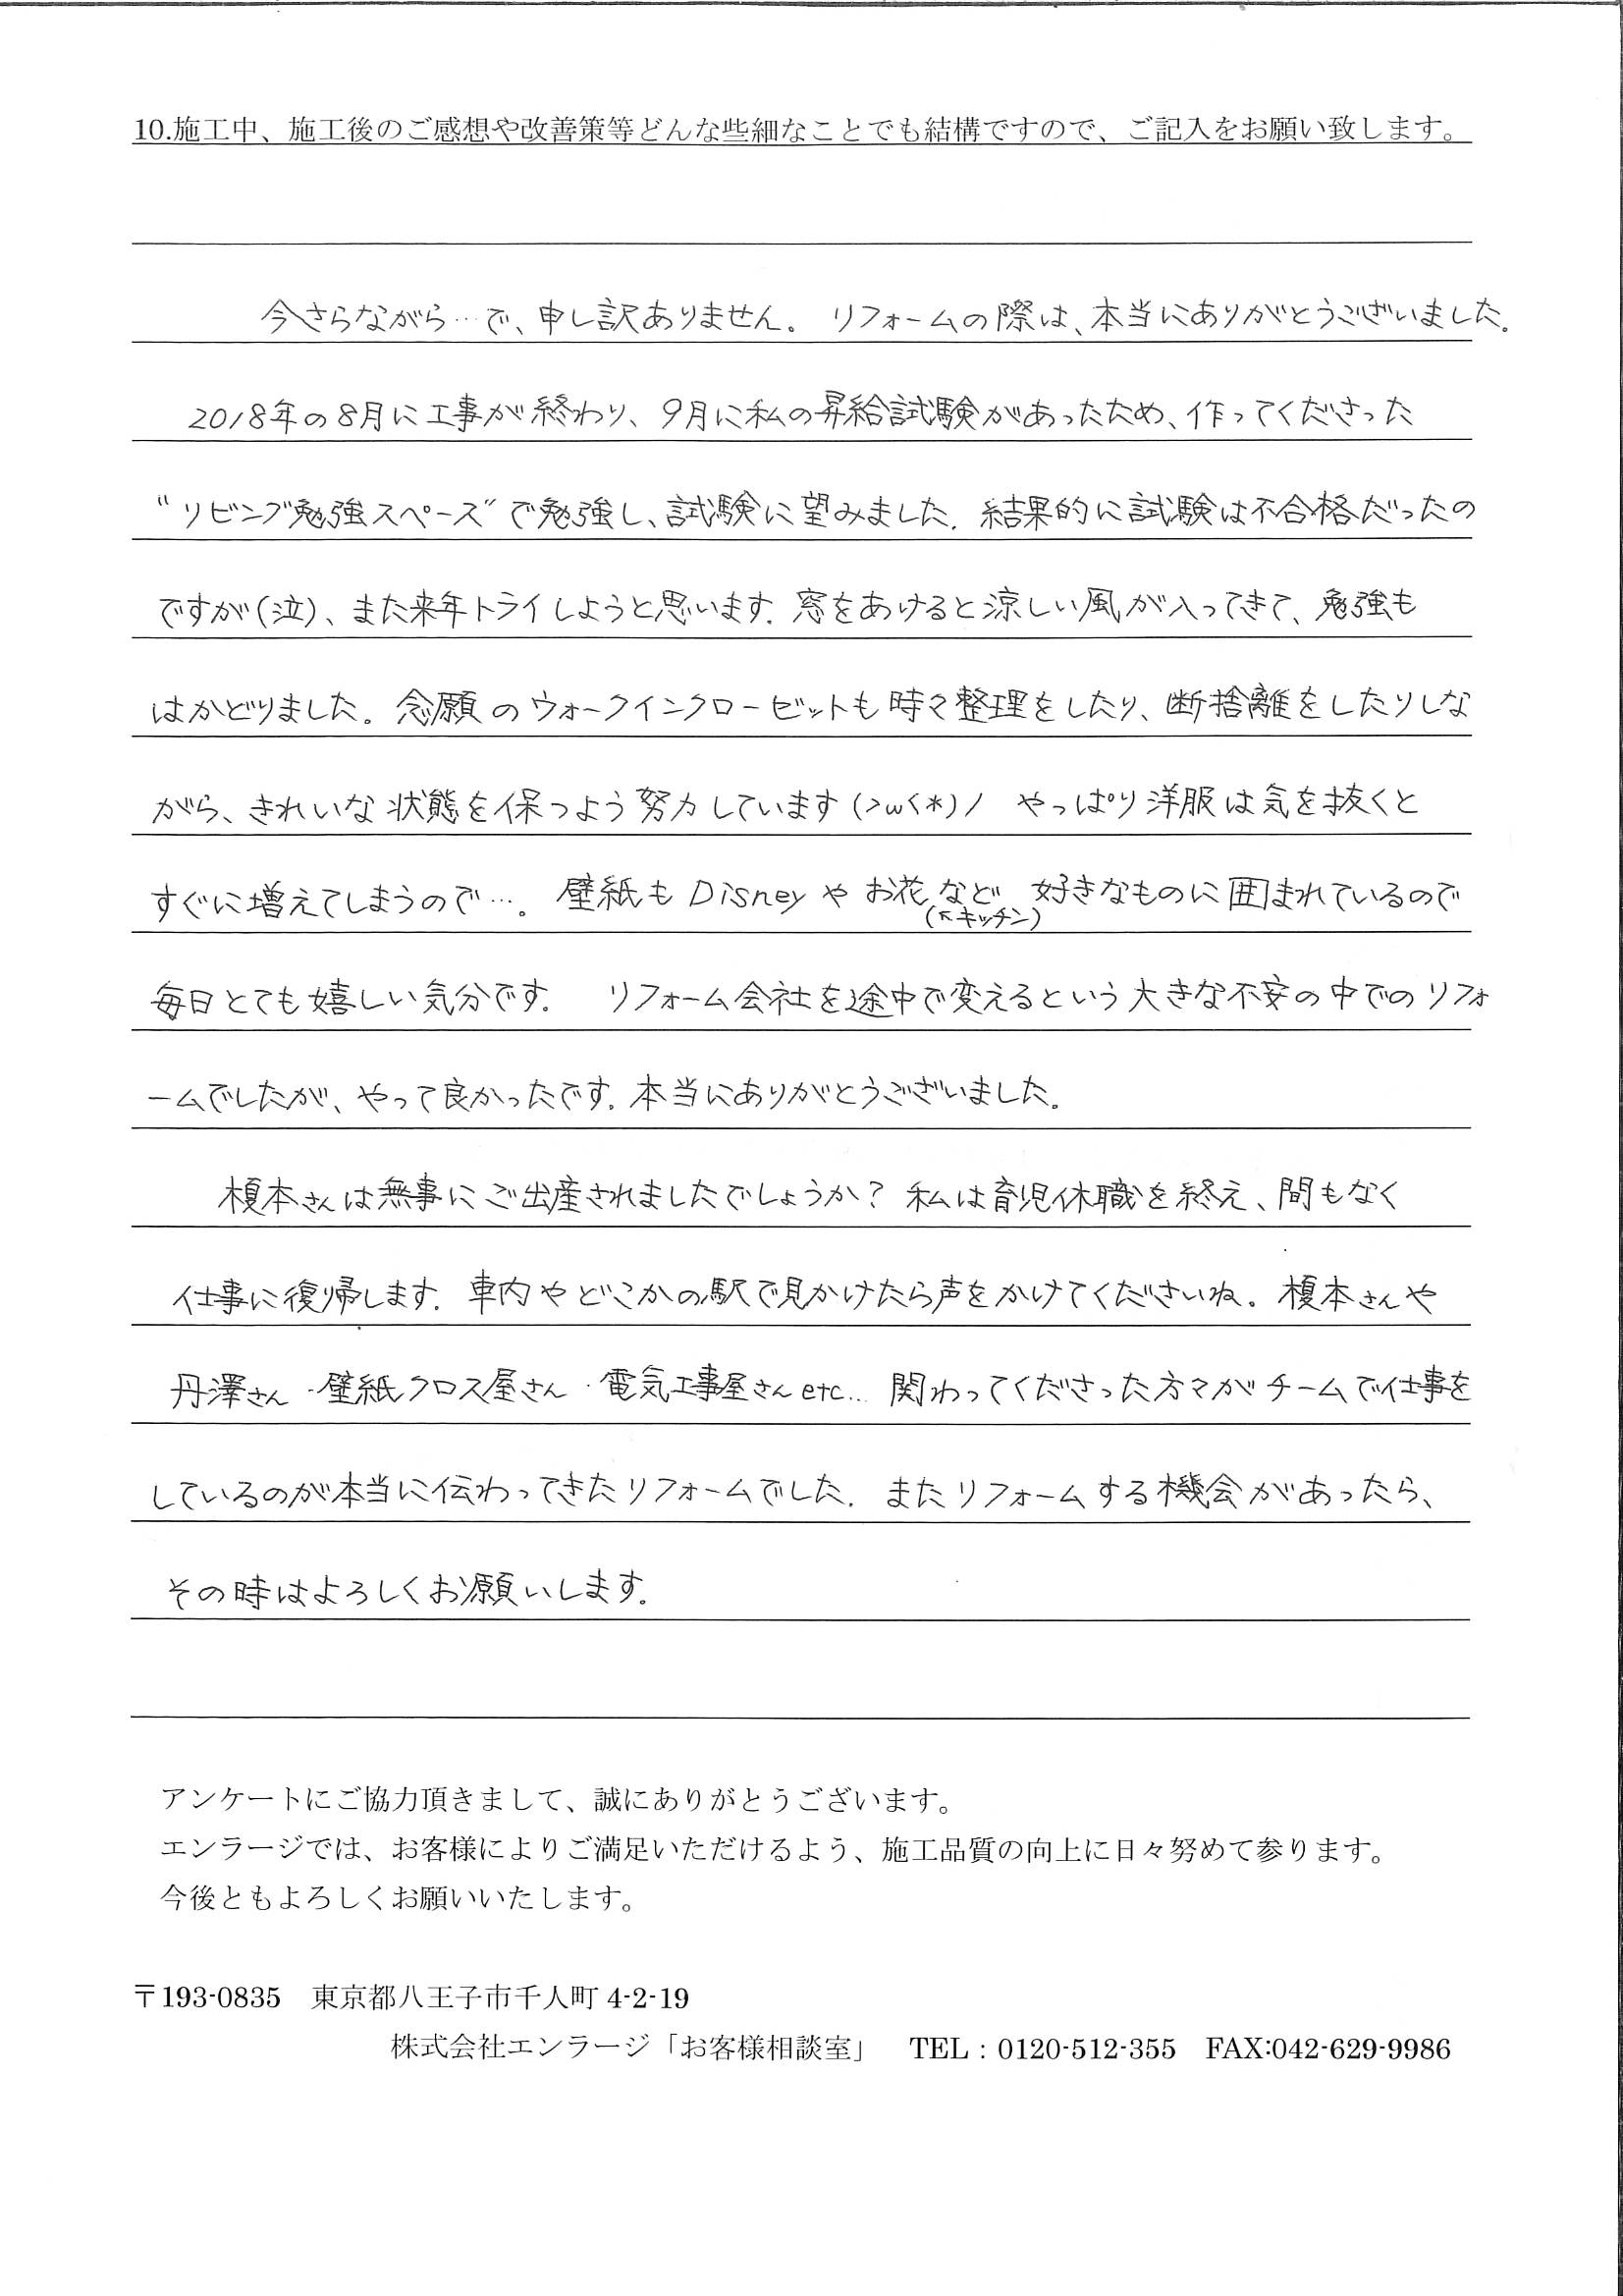 10.施工中、施工後のご感想や改善策等どんな些細なことでも結構ですので、ご記入をお願い致します。
今さらながら…で、申し訳ありません。 リフォームの際は、本当にありがとうございました。
2018年の8月に工事が終わり、9月に私の昇給試験があったため、作ってくださった
“リビング勉強スペース”で勉強し、試験に望みました。結果的に試験は不合格だったの
ですが(泣)、また来年トライしようと思います。窓をあけると涼しい風が入ってきて、勉強も
はかどりました。念願のウォークインクローゼットも時々整理をしたり、断捨離をしたりしな
がら、きれいな状態を保つよう努力しています(>ω<*)ノ やっぱり洋服は気を抜くと
すぐに増えてしまうので…。 壁紙もDisneyやお花など 好きなものに囲まれているので
(↖キッチン)
毎日とても嬉しい気分です。 リフォーム会社を途中で変えるという大きな不安の中でのリフォ
ームでしたが、やって良かったです。本当にありがとうございました。
榎本さんは無事にご出産されましたでしょうか? 私は育児休職を終え、間もなく
仕事に復帰します。車内やどこかの駅で見かけたら声をかけてくださいね。榎本さんや
丹澤さん・壁紙クロス屋さん・電気工事屋さんetc… 関わってくださった方々がチームで仕事を
しているのが本当に伝わってきたリフォームでした。またリフォームする機会があったら、
その時はよろしくお願いします。
アンケートにご協力頂きまして、誠にありがとうございます。
エンラージでは、お客様によりご満足いただけるよう、施工品質の向上に日々努めて参ります。
今後ともよろしくお願いいたします。
〒193-0835 東京都八王子市千人町 4-2-19
株式会社エンラージ「お客様相談室」 TEL：0120-512-355 FAX:042-629-9986